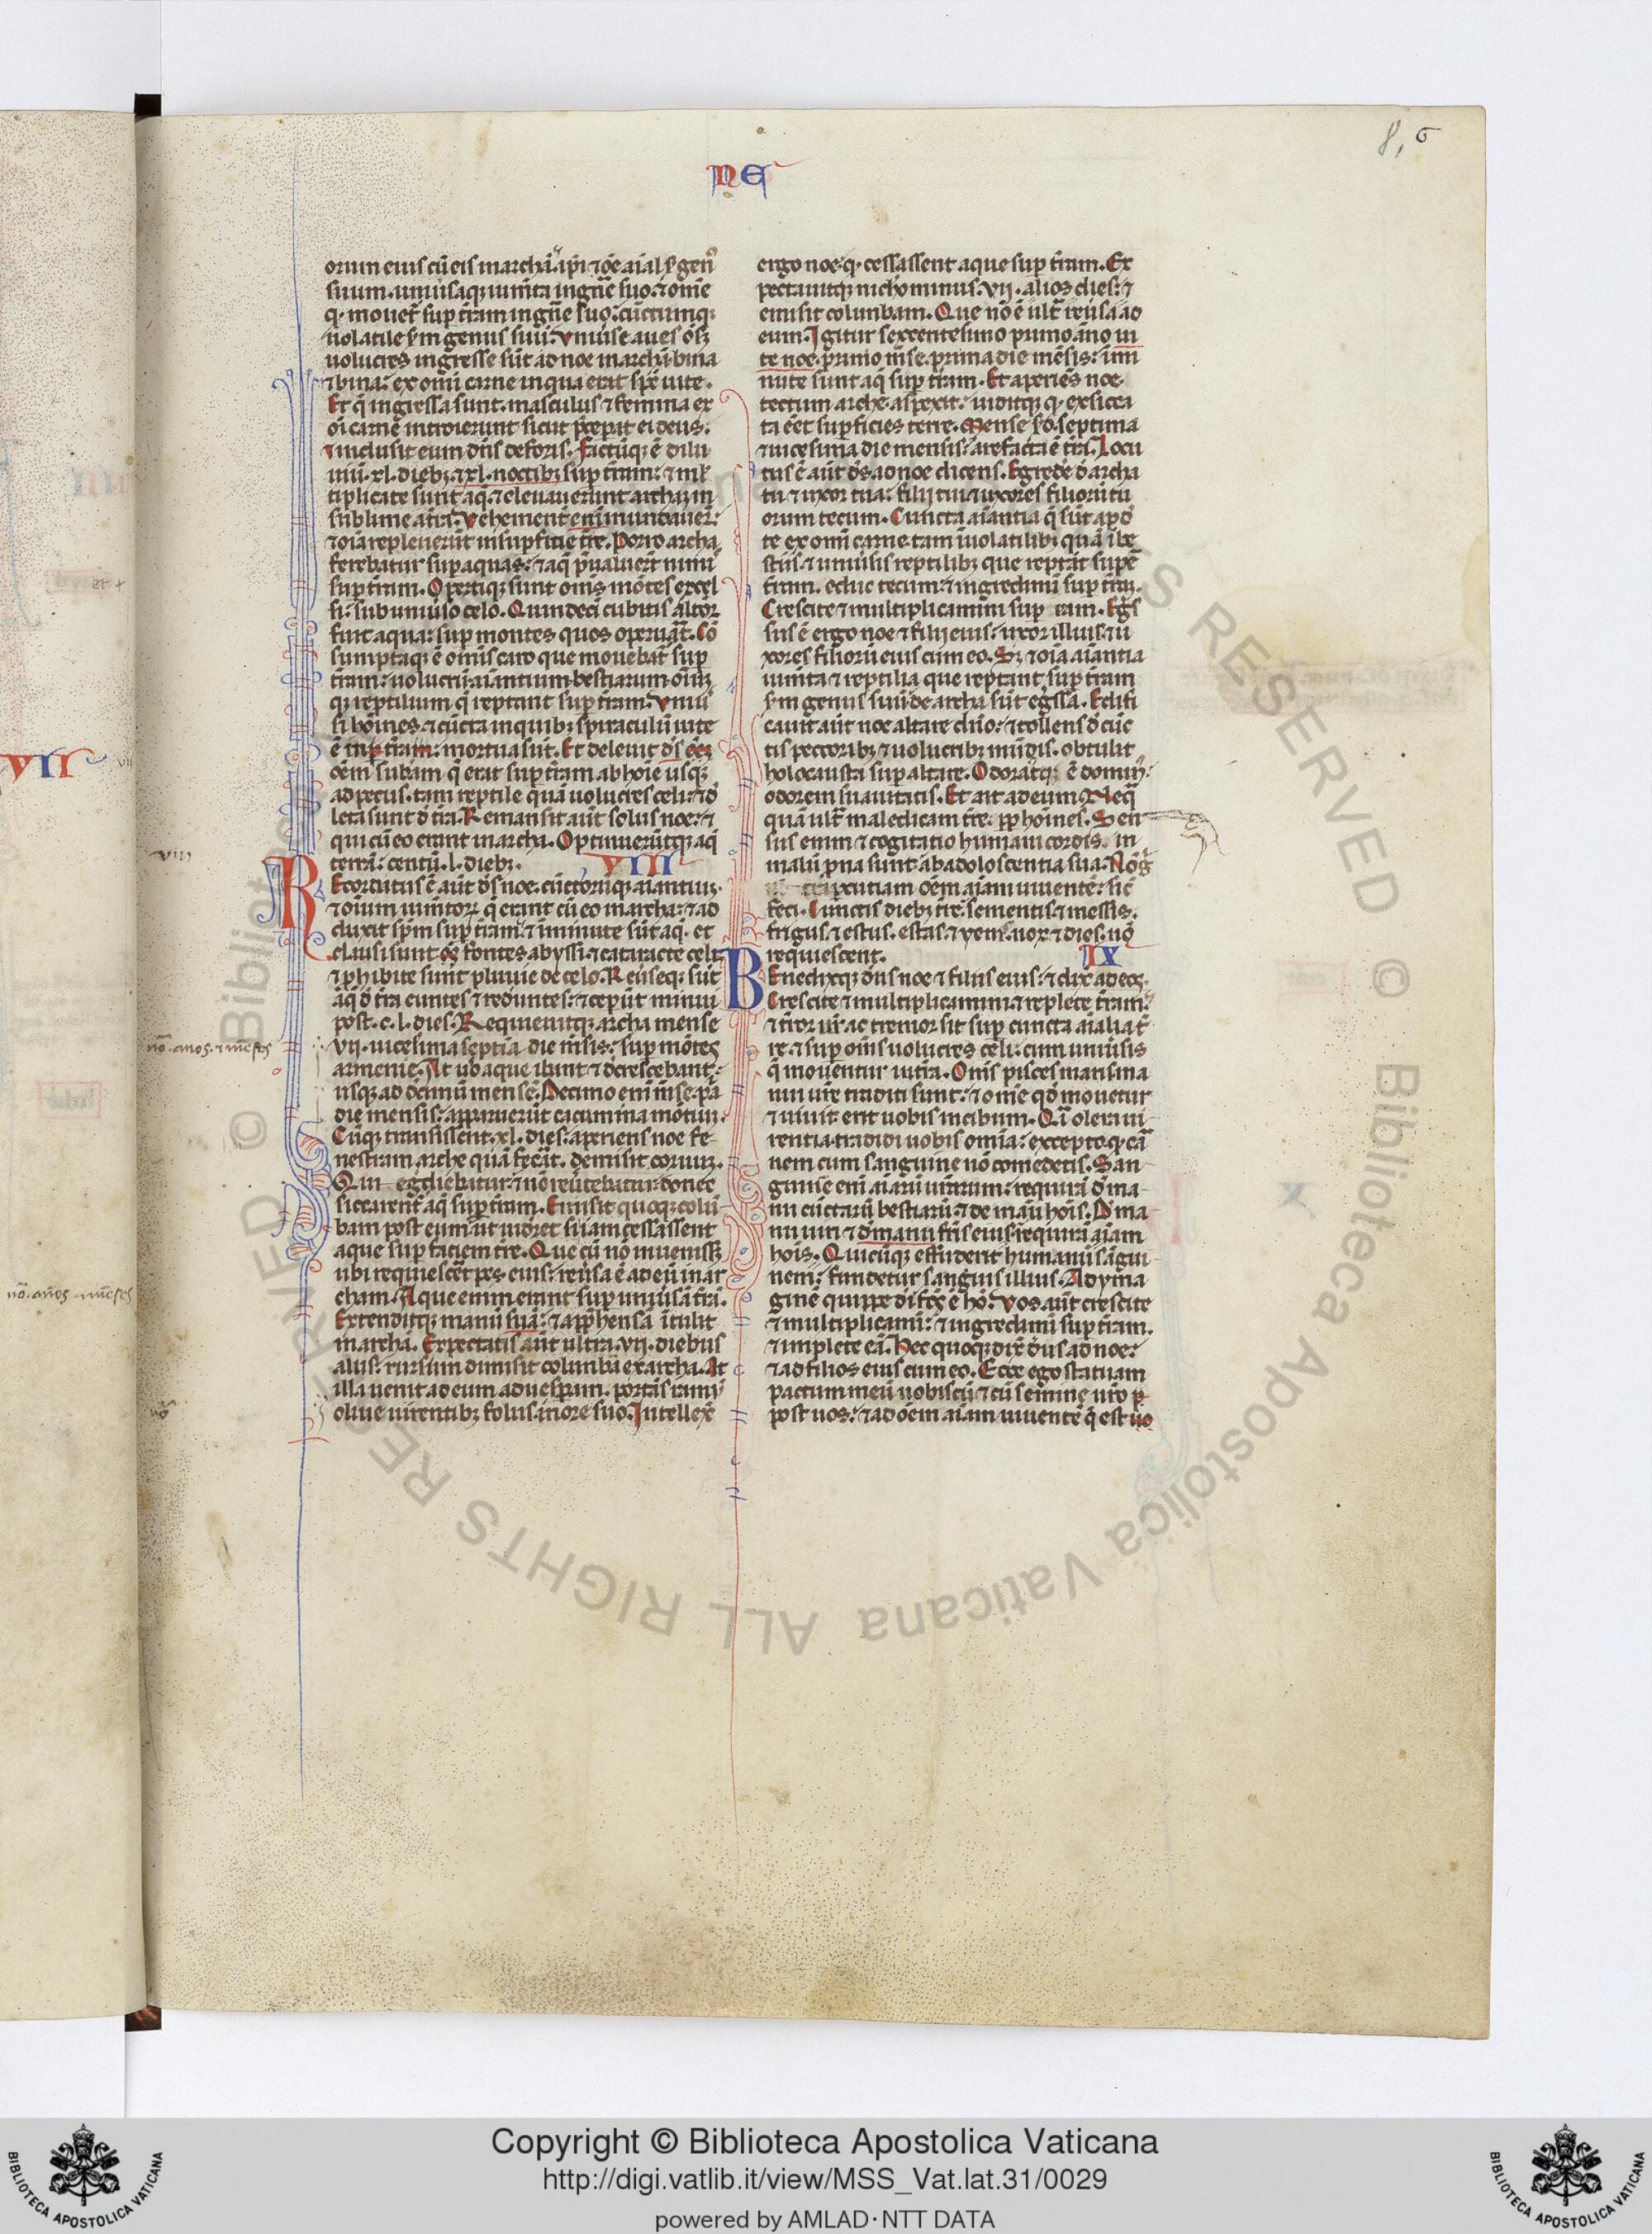 8,6
NE
orum eius cū eis in archā. ip̄i ⁊ oē aīal s̄ gen̄
suum. uniūsaqꝫ ium̄ta in gn̄e suo: ⁊ om̄e
q̄ mouet᷑ sup t̄ram in gn̄e suo: cūctumqꝫ
uolatile s̄m genus suū. Vniūse aues om̄s qꝫ
uolucres ingresse sūt ad noe in archā. bina
⁊ bina: ex om̄i carne in qua erat sp̄s uite.
Et q̄ ingressa sunt. masculus ⁊ femina ex
oī carne introierunt sicut p̄ceperat ei deus.
⁊ inclusit eum dn̄s deforis. Factūqꝫ ē dilu
uiū .xl. diebꝫ. ⁊ .xl. noctibꝫ sup t̄ram: ⁊ ml̄
tiplicate sunt aq̄. ⁊ eleuauerunt archaꝫ in
sublime a t̄ra. Vehement᷑ enī inundauer̄:
⁊ oīa repleuerūt in supficie t̄re. Porro archa
ferebatur sup aquas: ⁊ aq̄ p̄ualuerūt nimī
sup t̄ram. Opertiqꝫ sunt om̄s mōtes excel
si: sub uniūso celo. Quindecī cubitis altior
fuit aqua: sup montes quos operuāt. Cō
sumptaqꝫ ē om̄is caro que mouebat᷑ sup
t̄ram: uolucrū: aīantium: bestiarum: om̄iū
qꝫ reptilium q̄ reptant sup t̄ram. Vniū
si hoīnes. ⁊ cūcta in quibꝫ spiraculū uite
ē in t̄ram: mortua sūt. Et deleuit d̄s
oēm subām q̄ erat sup t̄ram ab hoīe usqꝫ
ad pecus. tam reptile quā uolucres celi: ⁊ d̄
leta sunt d̄ t̄ra. Remansit aūt solus noe: ⁊
qui cū eo erant in archa. Optinuerūtqꝫ aq̄
terrā: centū .l. diebꝫ.
VIII
Recordatus ē aūt d̄s noe. cūctorūqꝫ aīantiuꝫ.
⁊ oīum ium̄torꝫ q̄ erant cū eo in archa: ⁊ ad
duxit sp̄m sup t̄ram. ⁊ īminute sūt aq̄. et
clausi sunt fontes abyssi. ⁊ cataracte celi:
⁊ p̄hibite sunt pluuie de celo. Reūseqꝫ sūt
aq̄ d̄ t̄ra euntes ⁊ redūntes: ⁊ ceperūt minui
post .c.l. dies. Requieuitqꝫ archa mense
vij. uicesima septīa die m̄sis: sup mōtes
armenie. At ū aque ibant ⁊ d̄crescebant:
usqꝫ ad decimū mensē. Decimo enī m̄se p̄a
die mensis: apparuerūt cacumina mōtiuꝫ.
Cūqꝫ transissent .xl. dies: aperiens noe fe
nestram arche quā fec̄at. demisit coruuꝫ.
Qui egrediebatur: ⁊ nō reūtebatur: donec
siccarent᷑ aq̄ sup t̄ram. Emisit quoqꝫ colū
bam post eum: ut uid̄ret si iam cessassent
aque sup faciem t̄re. Que cū nō inuenissꝫ
ubi requiescēt pes eius: reūsa ē ad eū in ar
cham. Aque enim erant sup uniūsā t̄rā.
Extenditqꝫ manū suā: ⁊ app̄hensā ītulit
in archā. Expectatis aūt ultra .vij. diebus
aliis: rursum dimisit columbā ex archa. At
illa uenit ad eum ad uesp̄am. portās ramū
oliue uirentibꝫ foliis in ore suo. Intellex̄
ergo noe q̄ cessassent aque sup t̄ram. Ex
pectauitqꝫ nichominus .vij. alios dies: ⁊
emisit columbam. Que nō ē ult̄ reūsa ad
eum. Igitur sexcentesimo primo āno ui
te noe. primo m̄se. prima die mēsis: īmi
nute sunt aq̄ sup t̄ram. Et aperiēs noe.
tectum arche. aspexit: uiditqꝫ q̄ exsicca
ta ēēt supficies terre. Mense sc̄do. septima
⁊ uicesima die mensis: arefacta ē t̄ra. Locu
tus ē aūt d̄s ad noe dicens. Egrede d̄ archa
tu ⁊ uxor tua: filij tui ⁊ uxores filiorū tu
orum tecum. Cuncta aīantia q̄ sūt apd̄
te ex om̄i carne. tam ī uolatilibꝫ quā ī be
stiis: ⁊ uniūsis reptilibꝫ que reptāt sup̄
t̄ram. educ tecum: ⁊ ingredimī sup t̄raꝫ.
Crescite ⁊ multiplicamini sup eam. Egs̄
sus ē ergo noe ⁊ filij eius: uxor illius: ⁊ u
xores filiorū eius cum eo. Sꝫ ⁊ oīa aīantia
ium̄ta ⁊ reptilia que reptant sup t̄ram
s̄m genus suū: de archa sūt egs̄sa. Edifi
cauit aūt noe altare dn̄o: ⁊ tollens d̄ cūc
tis pecoribꝫ ⁊ uolucribꝫ mūdis. obtulit
holocausta sup altare. Odoratqꝫ ē domin᷒
odorem suauitatis. Et ait ad eum. Neq̄
quā ult̄ maledicam t̄re: pp̄ hoīnes. Sen
sus enim ⁊ cogitatio humani cordis. in
malū p̄na sunt ab adoloscentia sua. Nō ḡ
percutiam oēm aīam uiuentē: sic̄
feci. Cunctis diebꝫ t̄re. sementis ⁊ messis.
frigus ⁊ estus. estas ⁊ yem̄s. nox ⁊ dies. nō
requiescent.
IX
Benedixqꝫ d̄us noe ⁊ filiis eius: ⁊ dix̄ ad eos.
Crescite ⁊ multiplicamini ⁊ replete t̄ram:
⁊ t̄ror ūr ac tremor sit sup cuncta aīalia t̄
re: ⁊ sup om̄s uolucres celi: cum uniūsis
q̄ mouentur in t̄ra. Om̄s pisces maris ma
nui ūre traditi sunt: ⁊ om̄e qd̄ mouetur
⁊ uiuit. erit uobis in cibum. Q̄i olera ui
rentia. tradidi uobis omīa: excepto q̄ caī
nem cum sanguine nō comedetis. San
guinē enī aīarū urārum: requirā d̄ ma
nu cūctarū bestiarū: ⁊ de manu hoīs. D̄ ma
nu uiri ⁊ d̄ manu fr̄is eius: requirā aīam
hoīs. Quicūqꝫ effuderit humanū sāgui
nem: fundetur sanguis illius. Ad yma
ginē quippe dī fc̄s ē hō. Vos aūt crescite
⁊ multiplicamī: ⁊ ingredimī sup t̄ram.
⁊ implete eā. Hec quoqꝫ dix̄ d̄us ad noe:
⁊ ad filios eius cum eo. Ecce ego statuam
pactum meū uobiscū ⁊ cū semine ūro p̄
post uos: ⁊ ad oēm aīam uiuentē q̄ est uo
VII
viii
nō. anos. ⁊ mēses
nō. anos. mēses
nō
et +
Copyright © Biblioteca Apostolica Vaticana
http://digi.vatlib.it/view/MSS_Vat.lat.31/0029
powered by AMLAD·NTT DATA
BIBLIOTECA APOSTOLICA VATICANA
BIBLIOTECA APOSTOLICA VATICANA
© Biblioteca Apostolica Vaticana ALL RIGHTS RESERVED